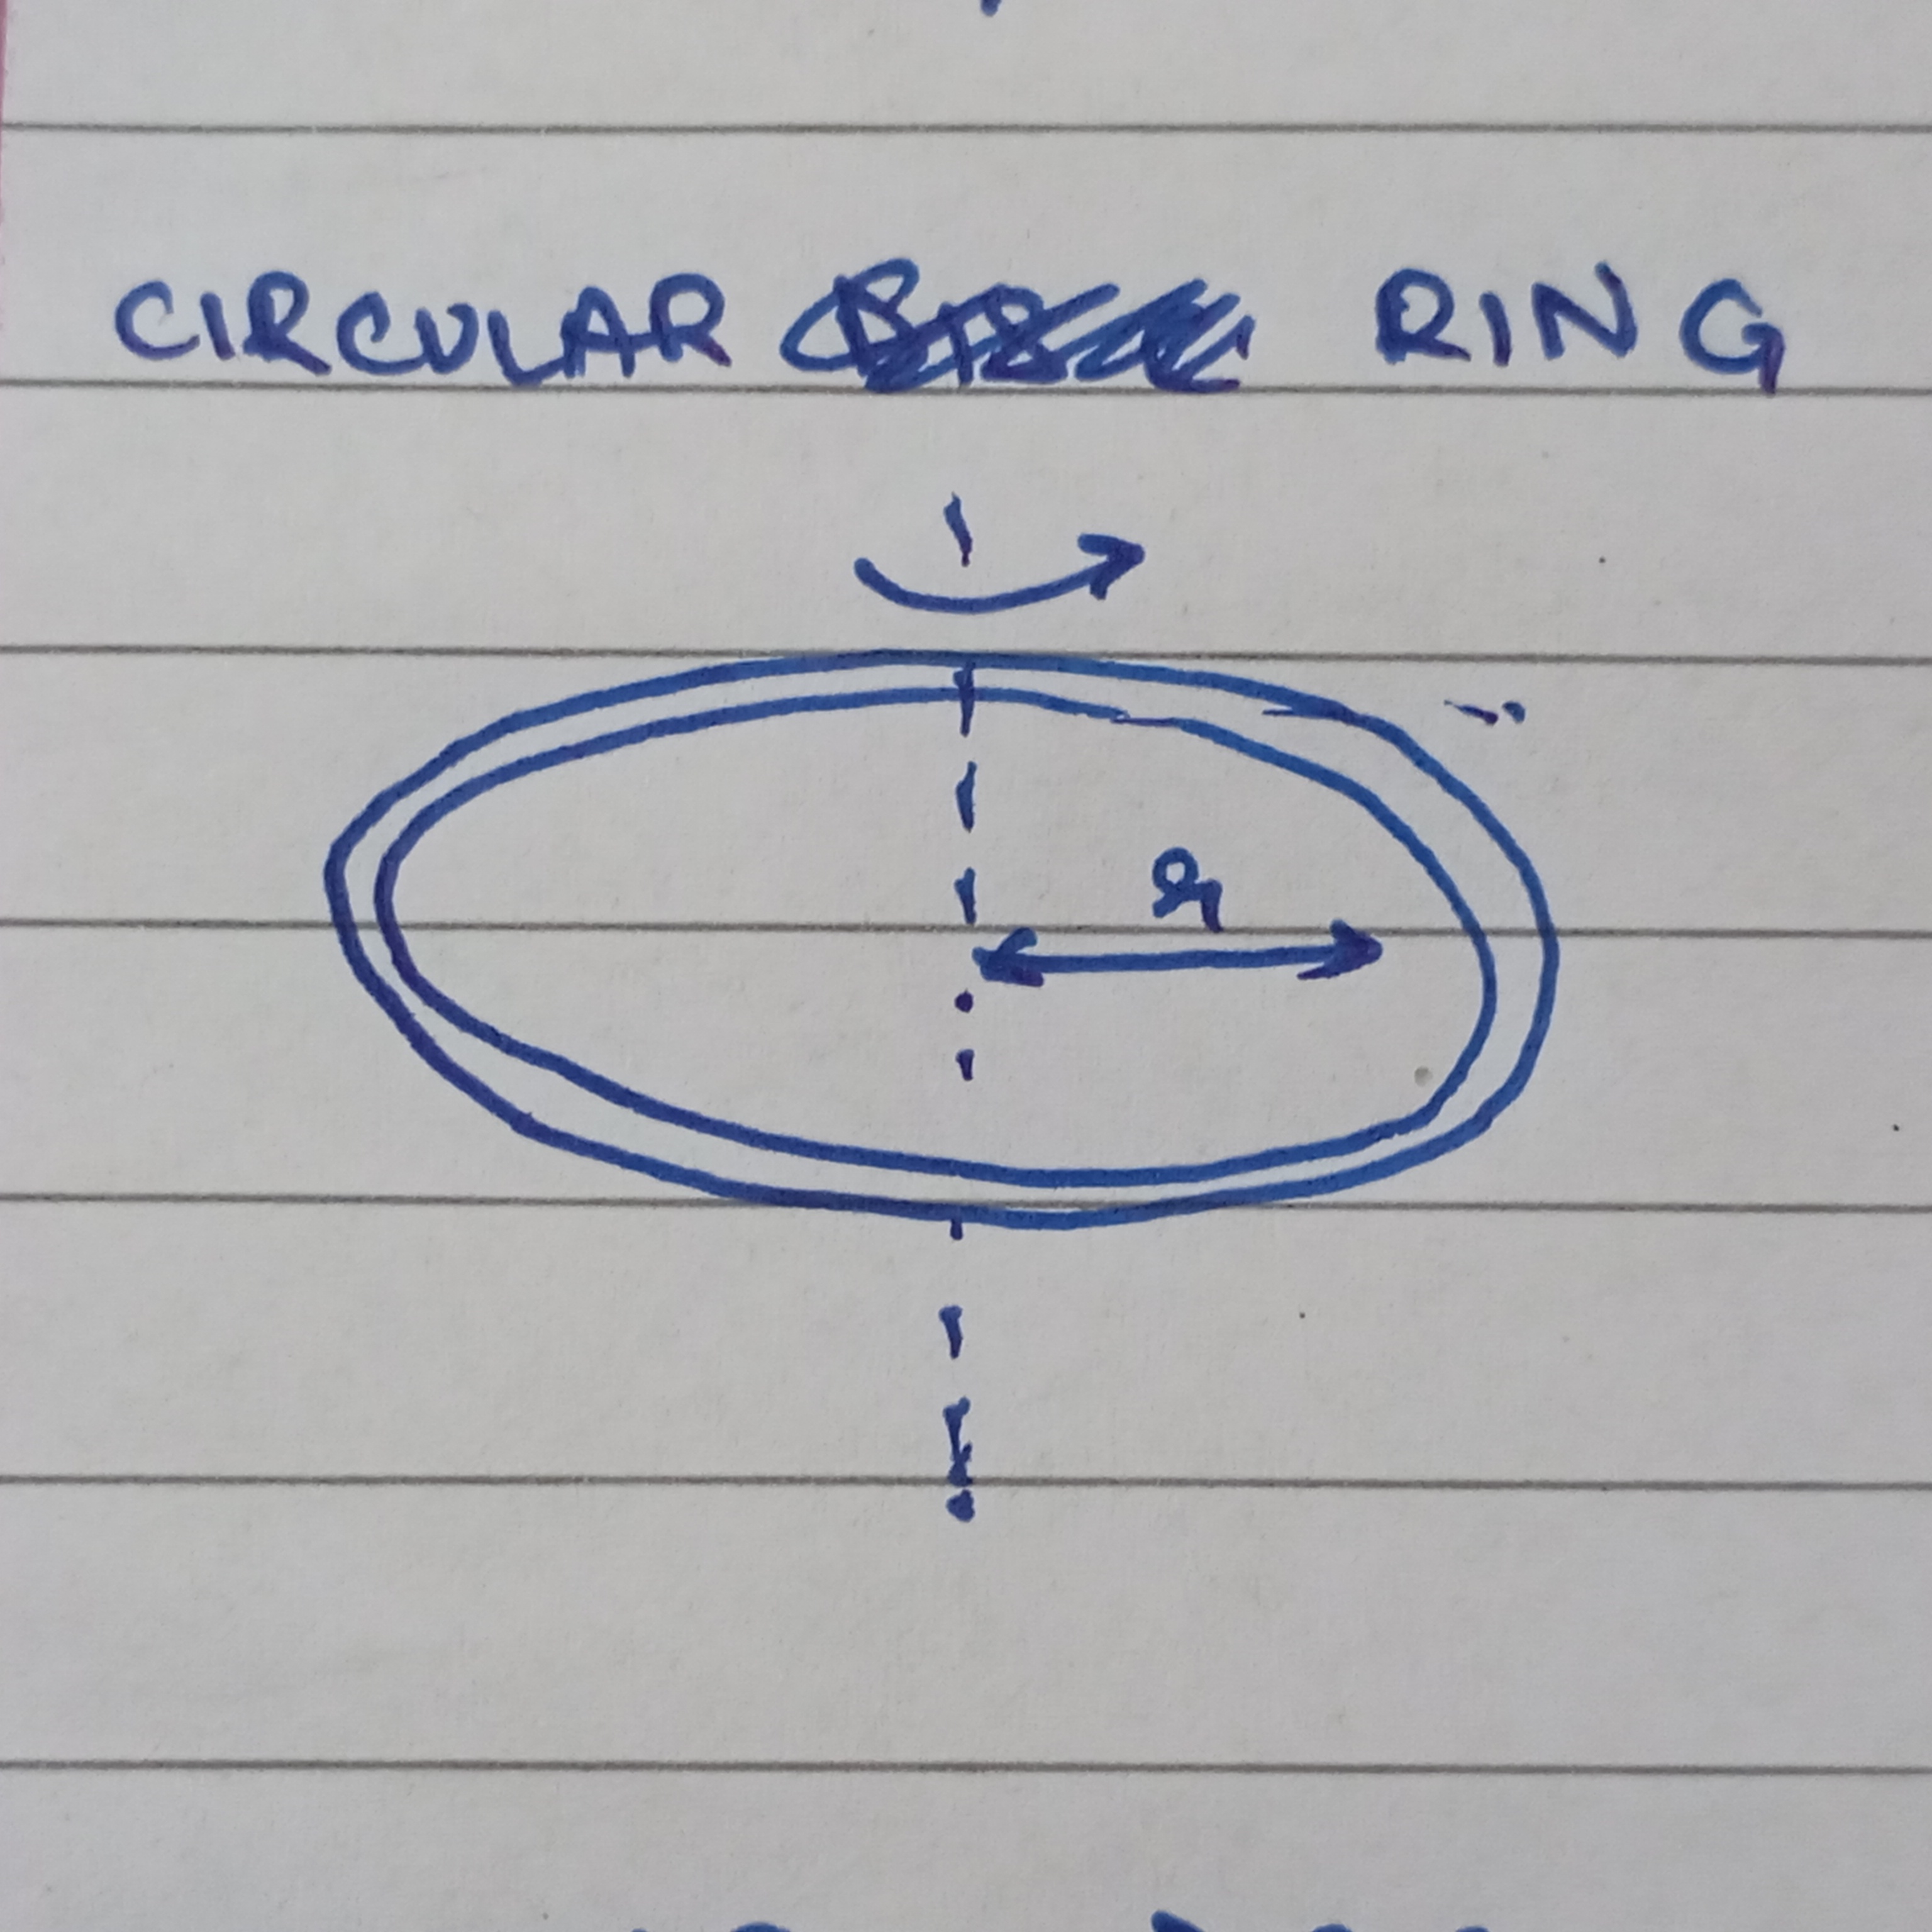 CIRCULAR RING
r